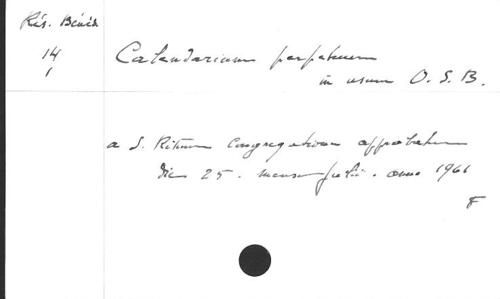 Rés. Bénéd.
14
1
Calendarium perpetuum
in usum O. S. B.
a S. Rituum Congregatione approbatum
die 25. mensis Julii. anno 1961
F